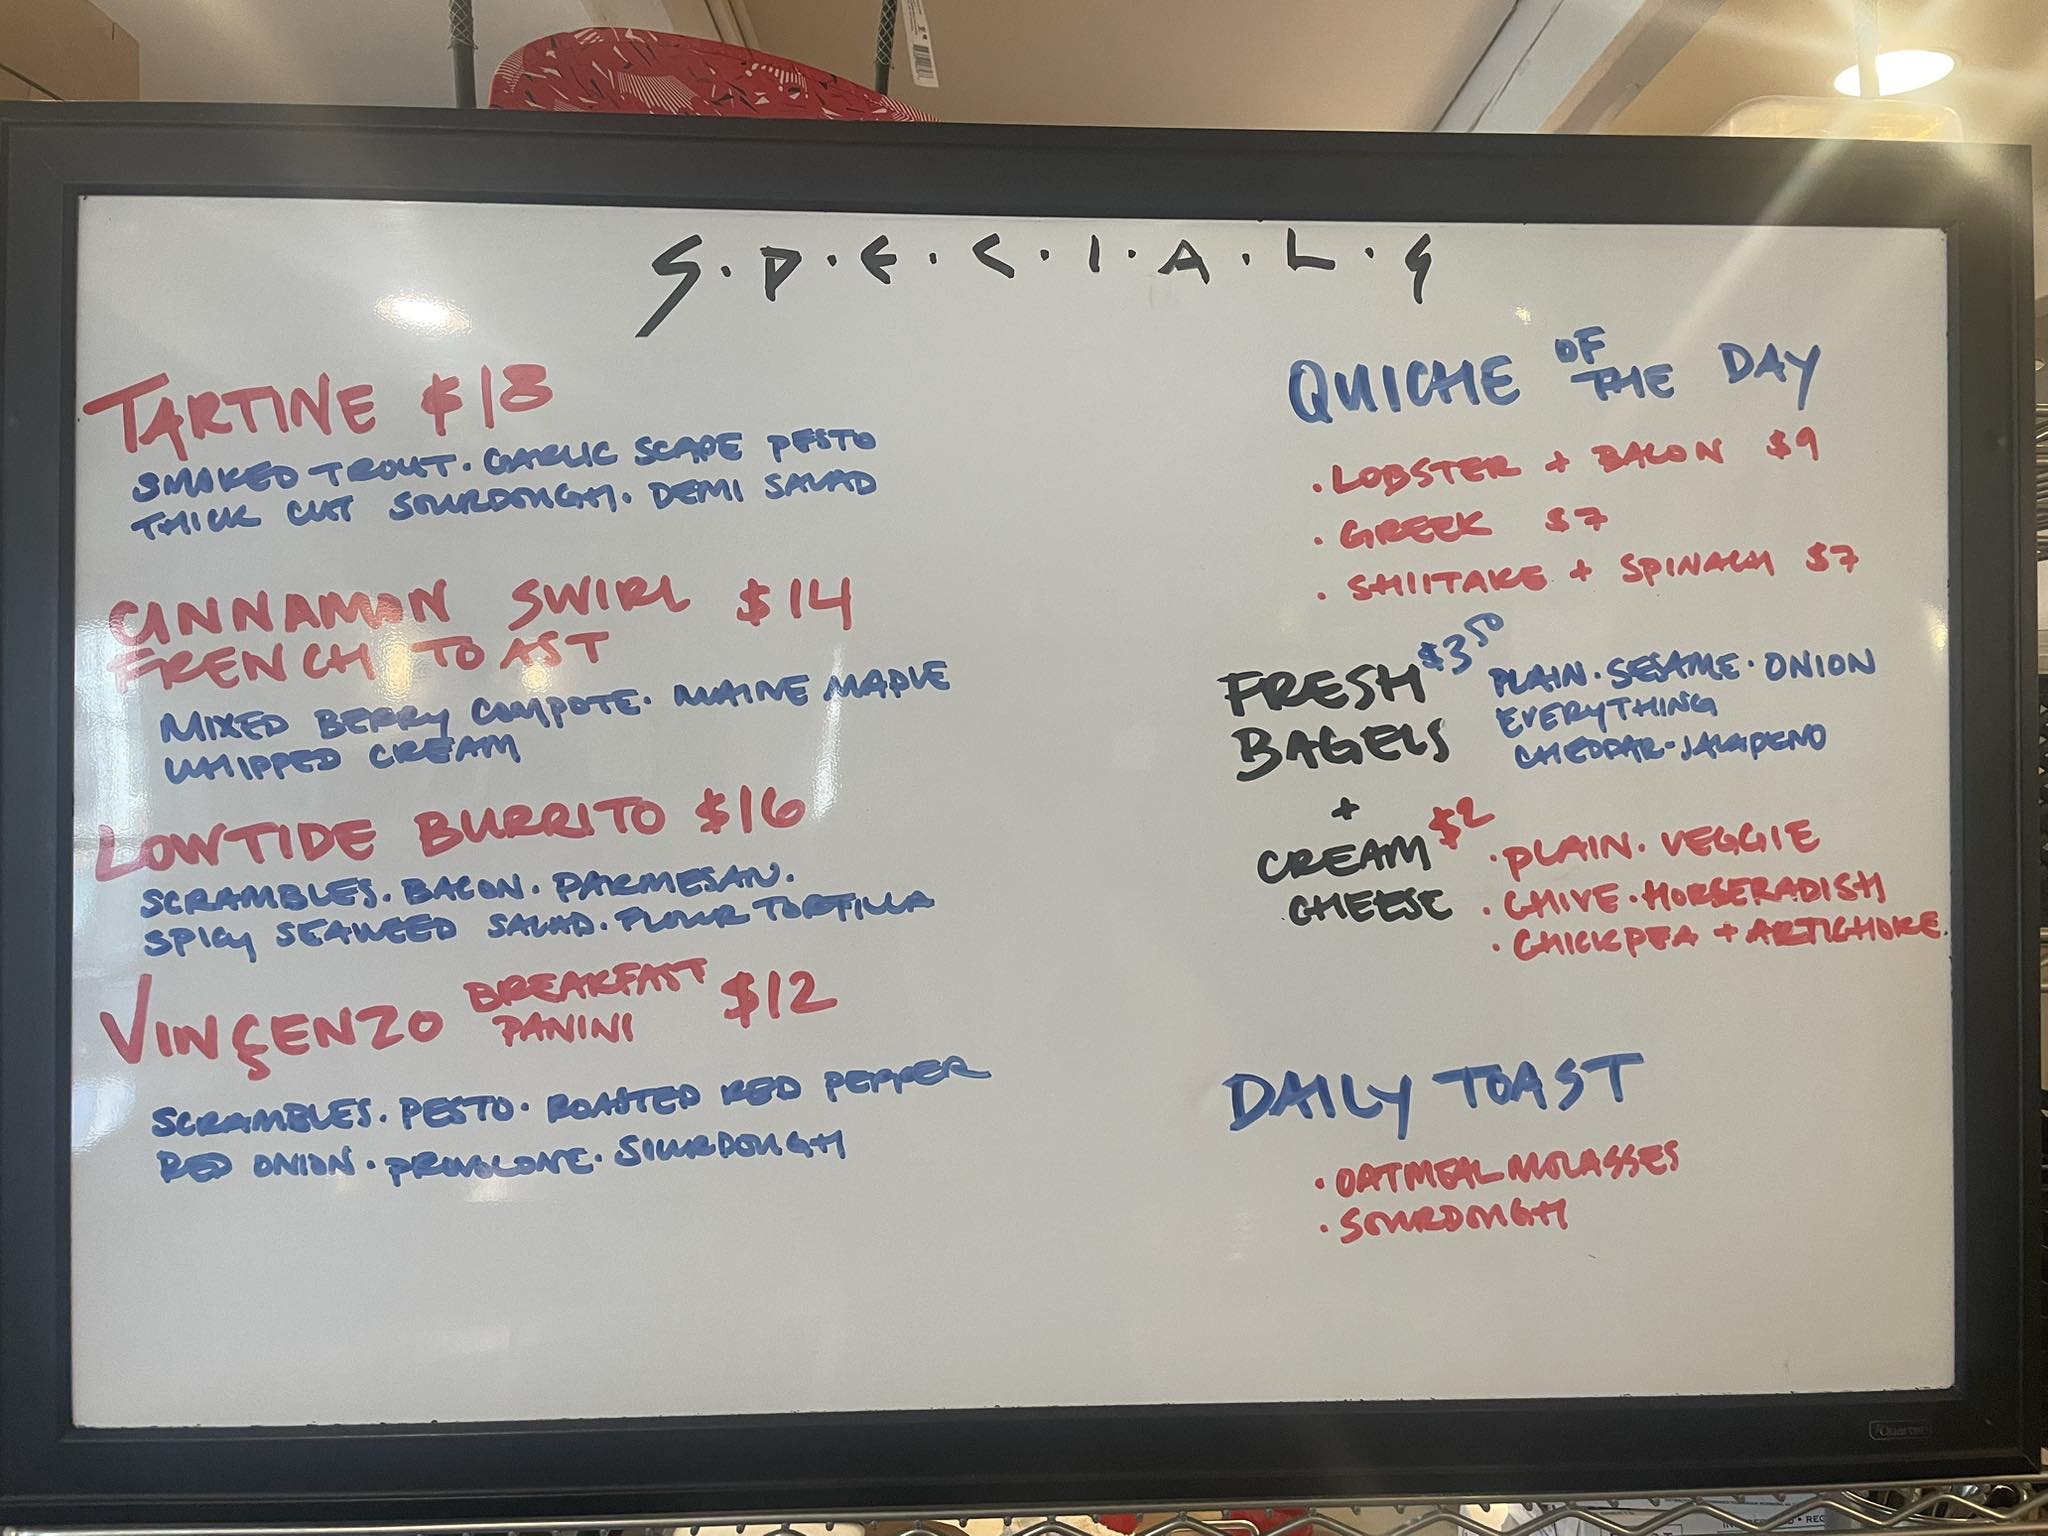 S.P.E.C.I.A.L.S
TARTINE $18
SMOKED TROUT. GARLIC SCAPE PESTO
THICK CUT SOURDOUGH. DEMI SALAD
CINNAMON SWIRL $14
FRENCH TOAST
MIXED BERRY COMPOTE. MAINE MAPLE
WHIPPED CREAM
LOWTIDE BURRITO $16
SCRAMBLES. BACON. PARMESAN.
SPICY SEAWEED SALAD. FLOUR TORTILLA
VINÇENZO BREAKFAST PANINI $12
SCRAMBLES. PESTO. ROASTED RED PEPPER
RED ONION. PROVOLONE. SOURDOUGH
QUICHE OF THE DAY
• LOBSTER + BACON $9
• GREEK $7
• SHIITAKE + SPINACH $7
FRESH BAGELS $3.50
PLAIN. SESAME. ONION
EVERYTHING
CHEDDAR-JALAPENO
+
CREAM CHEESE $2
• PLAIN. VEGGIE
• CHIVE. HORSERADISH
• CHICKPEA + ARTICHOKE
DAILY TOAST
• OATMEAL MOLASSES
• SOURDOUGH
Quartet